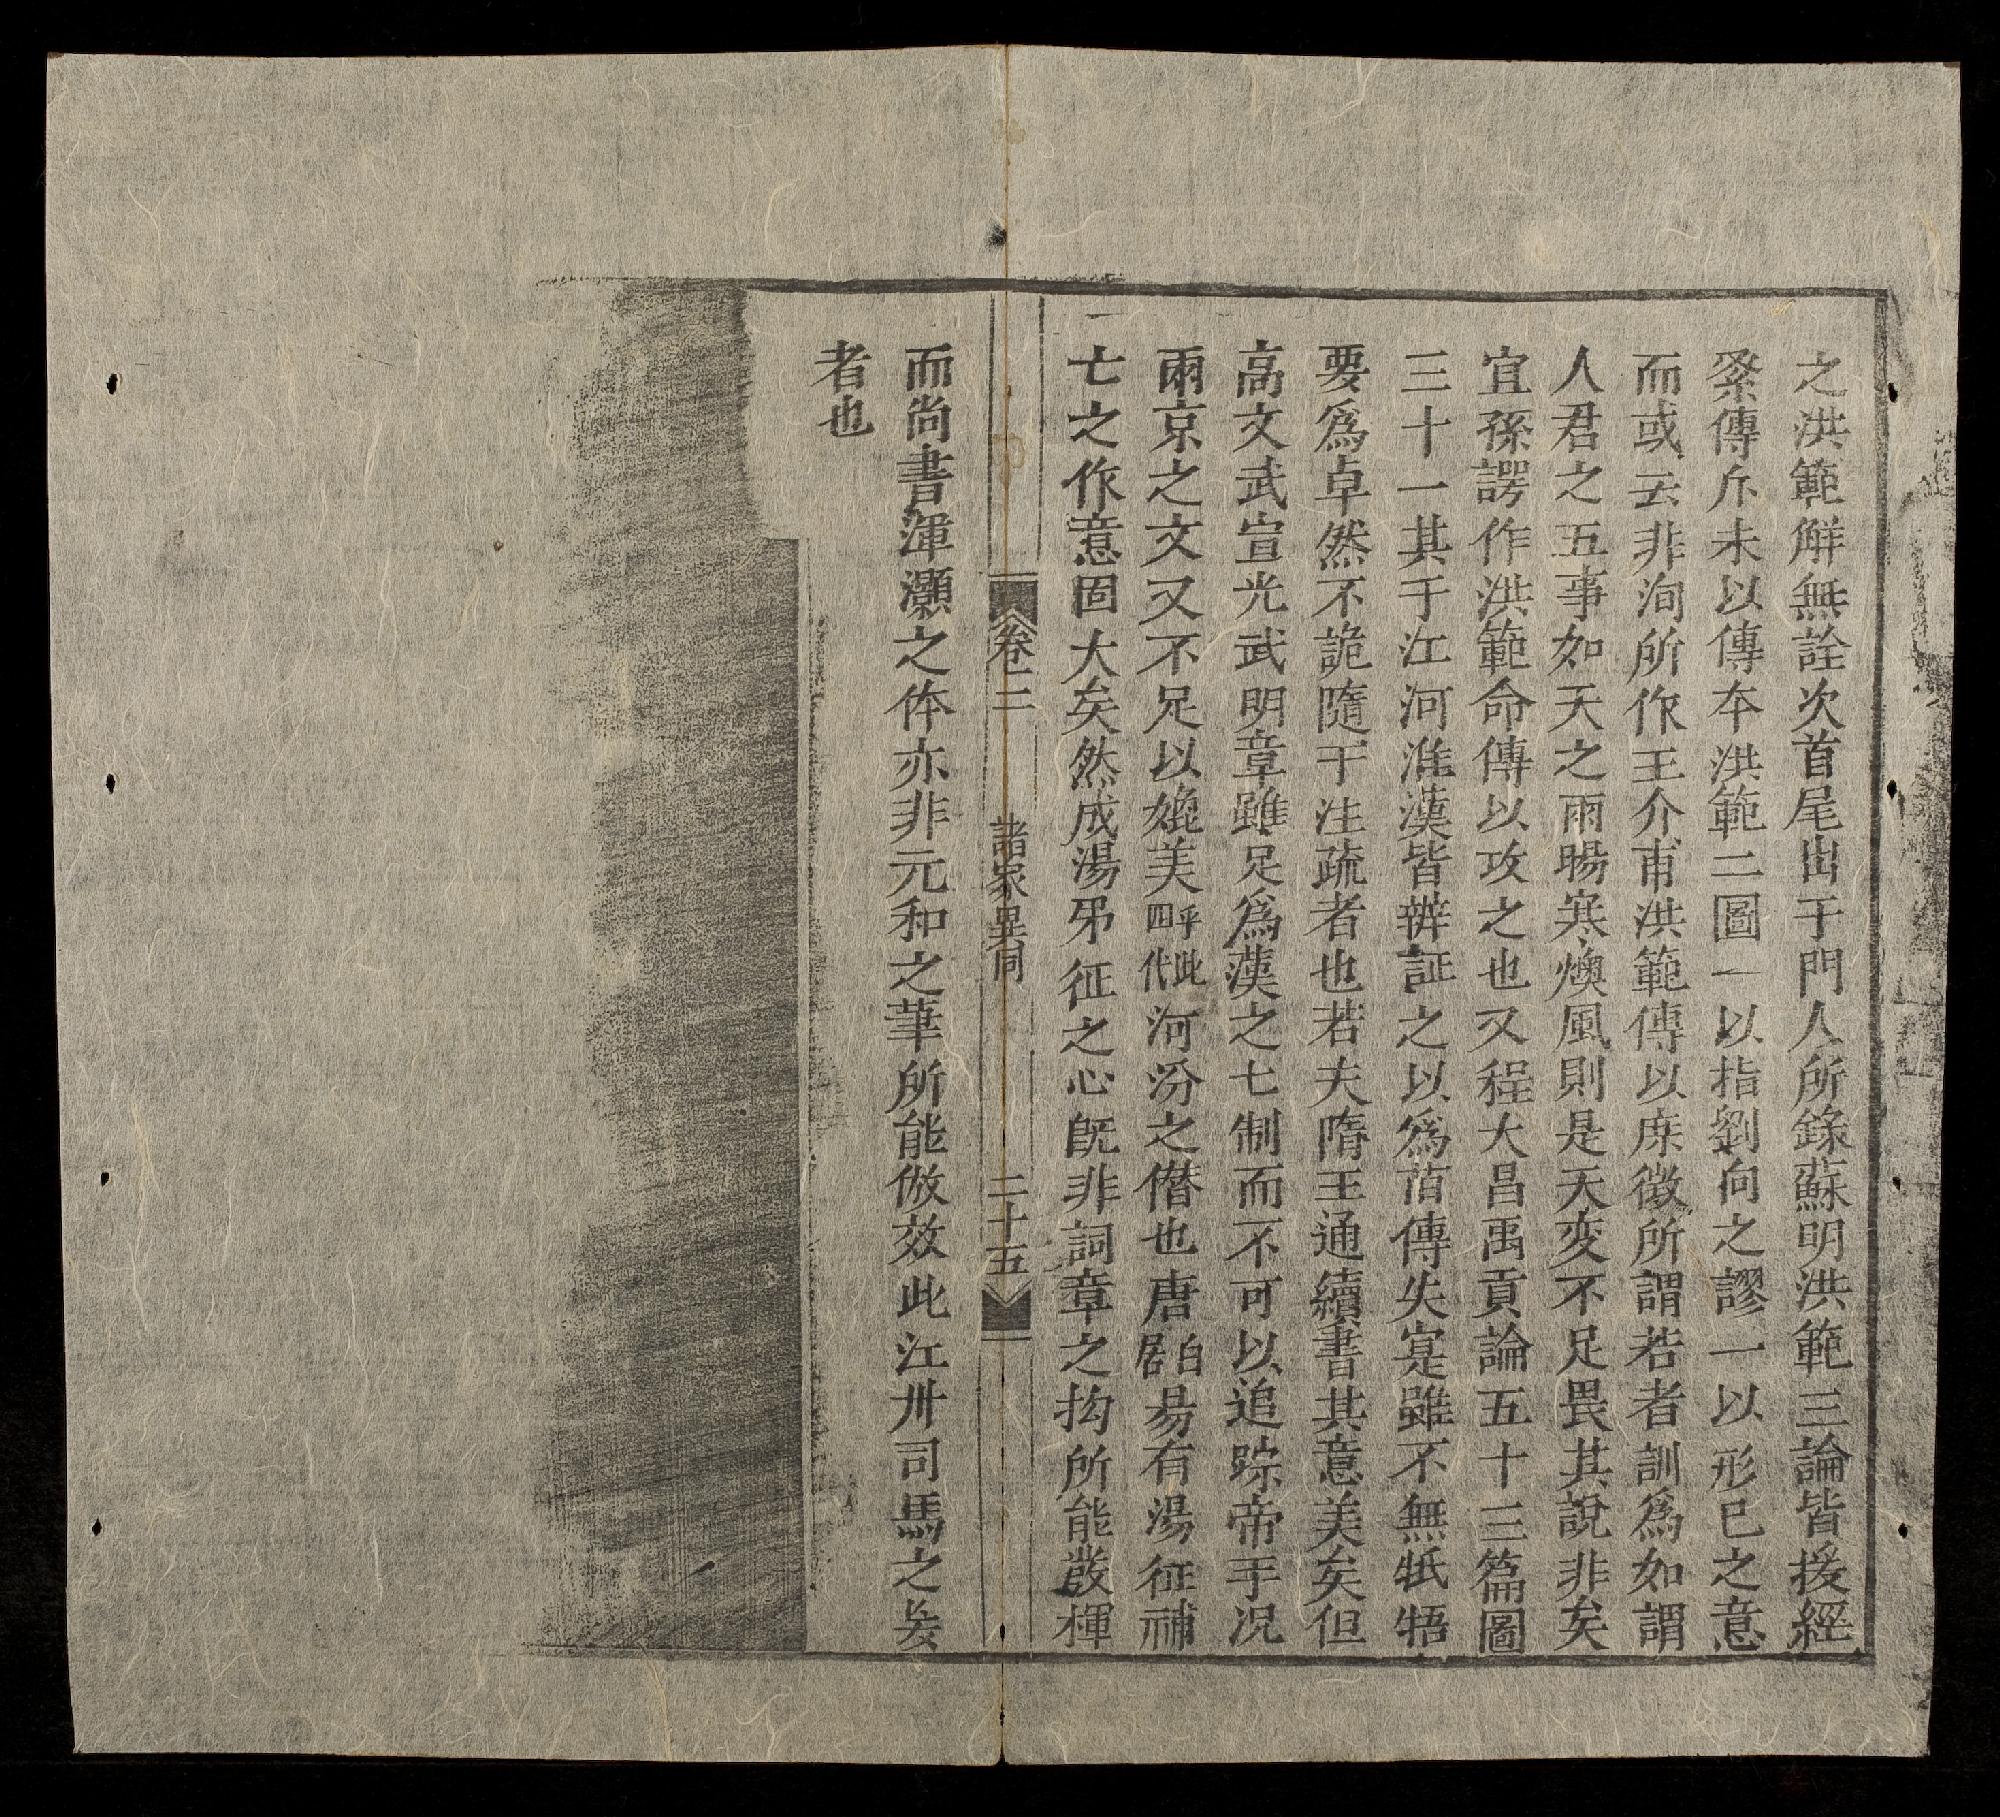 之洪範解無詮次首尾出于門人所錄蘇明洪範三論皆援經
傳斥未以傳本洪範二圖一以指劉向之謬一以形已之意
而或云非洵所作王介甫洪範傳以庶徵所謂若者訓爲如謂
人君之五事如天之雨暘寒燠風則是天変不足畏其說非矣
宜孫諤作洪範命傳以攻之也又程大昌禹貢論五十三篇圖
三十一其于江河淮漢皆辨証之以爲苗傳失寔雖不無牴牾
要爲卓然不詭隨于注疏者也若夫隋王通續書其意美矣但
高文武宣光武明章雖足爲漢之七制而不可以追踪帝手况
兩京之文又不足以媲美乎此四代河汾之僭也唐白居易有湯征補
亡之作意固大矣然成湯弔征之心既非詞章之抅所能發揮
卷二 諸家異同 二十五
而尚書渾灝之体亦非元和之筆所能倣效此江州司馬之妄
者也